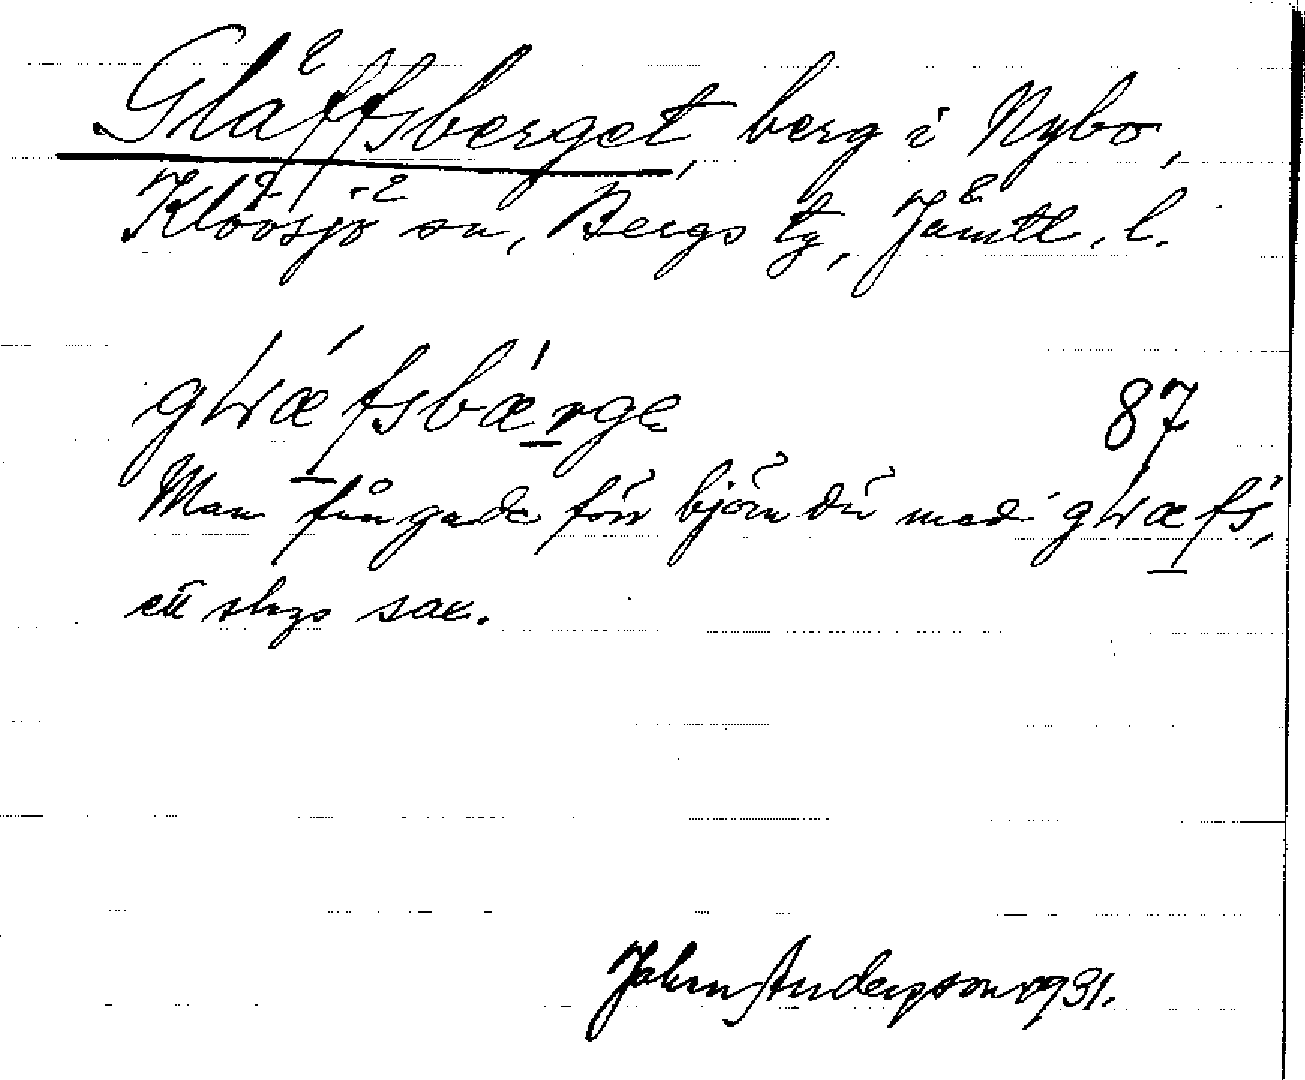 Gläffsberget, berg i Nybo,
Klövsjö sn, Bergs tg, Jämtl. l.
gLǽfsbǽrge
87
Man fångade förr björn där med gLæfs,
ett slags sax.
Jahn Anderson 1931.